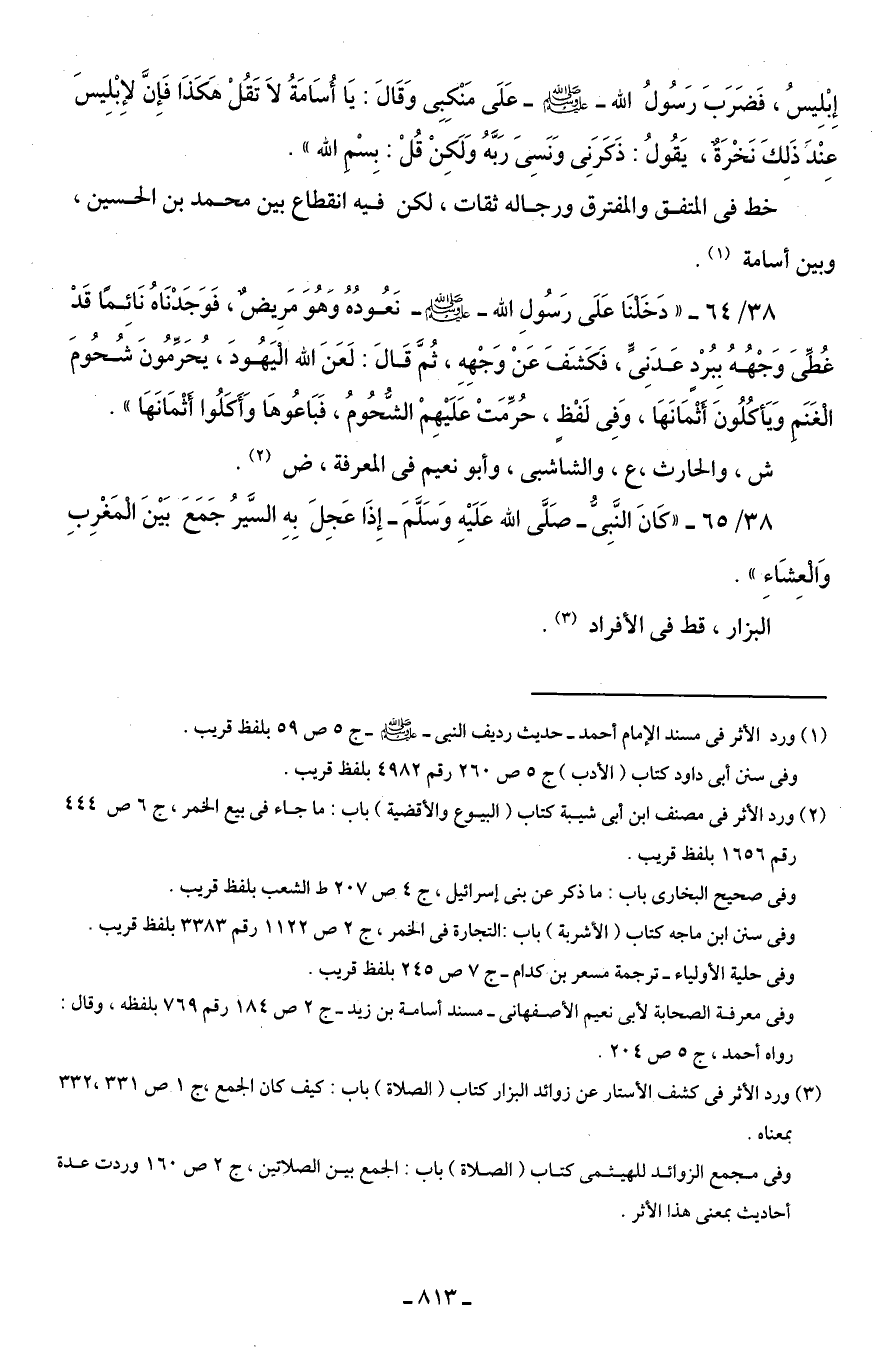 إِبْلِيسُ ، فَضَرَبَ رَسُولُ الله ـ ﷺ ـ عَلَى مَنْكِبِى وَقَالَ : يَا أُسَامَةُ لاَ تَقُلْ هَكَذَا فَإِنَّ لإِبْلِيسَ
عِنْدَ ذَلِكَ نَخْرَةٌ ، يَقُولُ : ذَكَرَنِى وَنَسِىَ رَبَّهُ وَلَكِنْ قُلْ : بِسْمِ الله » .
خط فى المتفق والمفترق ورجاله ثقات ، لكن فيه انقطاع بين محمد بن الحسين ،
وبين أسامة (١) .
٣٨/ ٦٤ ـ « دَخَلْنَا عَلَى رَسُولِ الله ـ ﷺ ـ نَعُودُهُ وَهُوَ مَرِيضٌ ، فَوَجَدْنَاهُ نَائِمًا قَدْ
غُطِّىَ وَجْهُهُ بِبُرْدٍ عَدَنِىٍّ ، فَكَشَفَ عَنْ وَجْهِهِ ، ثُمَّ قَالَ : لَعَنَ الله الْيَهُودَ ، يُحَرِّمُونَ شُحُومَ
الْغَنَمِ وَيَأكُلُونَ أَثْمَانَهَا ، وَفِى لَفْظٍ ، حُرِّمَتْ عَلَيْهِمْ الشُّحُومُ ، فَبَاعُوهَا وَأَكَلُوا أَثْمَانَهَا » .
ش ، والحارث ،ع ، والشاشبى ، وأبو نعيم فى المعرفة ، ض (٢) .
٣٨/ ٦٥ ـ «كَانَ النَّبِىُّ ـ صَلَّى الله عَلَيْهِ وَسَلَّمَ ـ إِذَا عَجِلَ بِهِ السَّيرُ جَمَعَ بَيْنَ الْمَغْرِبِ
وَالْعِشَاءِ » .
البزار ، قط فى الأفراد (٣) .
(١) ورد الأثر فى مسند الإمام أحمد ـ حديث رديف النبى ـ ﷺ ـ ج ٥ ص ٥٩ بلفظ قريب .
وفى سنن أبى داود كتاب ( الأدب ) ج ٥ ص ٢٦٠ رقم ٤٩٨٢ بلفظ قريب .
(٢) ورد الأثر فى مصنف ابن أبى شيبة كتاب ( البيوع والأقضية ) باب : ما جاء فى بيع الخمر ، ج ٦ ص ٤٤٤
رقم ١٦٥٦ بلفظ قريب .
وفى صحيح البخارى باب : ما ذكر عن بنى إسرائيل ، ج ٤ ص ٢٠٧ ط الشعب بلفظ قريب .
وفى سنن ابن ماجه كتاب ( الأشربة ) باب :التجارة فى الخمر ، ج ٢ ص ١١٢٢ رقم ٣٣٨٣ بلفظ قريب .
وفى حلية الأولياء ـ ترجمة مسعر بن كدام ـ ج ٧ ص ٢٤٥ بلفظ قريب .
وفى معرفة الصحابة لأبى نعيم الأصفهانى ـ مسند أسامة بن زيد ـ ج ٢ ص ١٨٤ رقم ٧٦٩ بلفظه ، وقال :
رواه أحمد ، ج ٥ ص ٢٠٤ .
(٣) ورد الأثر فى كشف الأستار عن زوائد البزار كتاب ( الصلاة ) باب : كيف كان الجمع ،ج ١ ص ٣٣١ ،٣٣٢
بمعناه .
وفى مجمع الزوائد للهيثمى كتاب ( الصلاة ) باب : الجمع بين الصلاتين ، ج ٢ ص ١٦٠ وردت عدة
أحاديث بمعنى هذا الأثر .
ـ ٨١٣ ـ